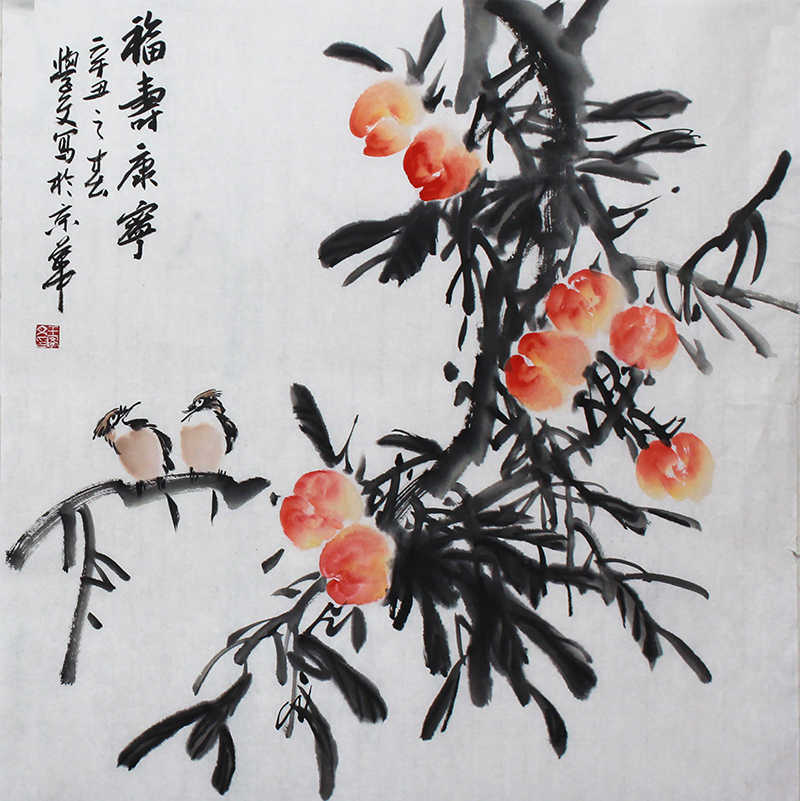 福壽康寧
辛丑之春
學文寫於京華